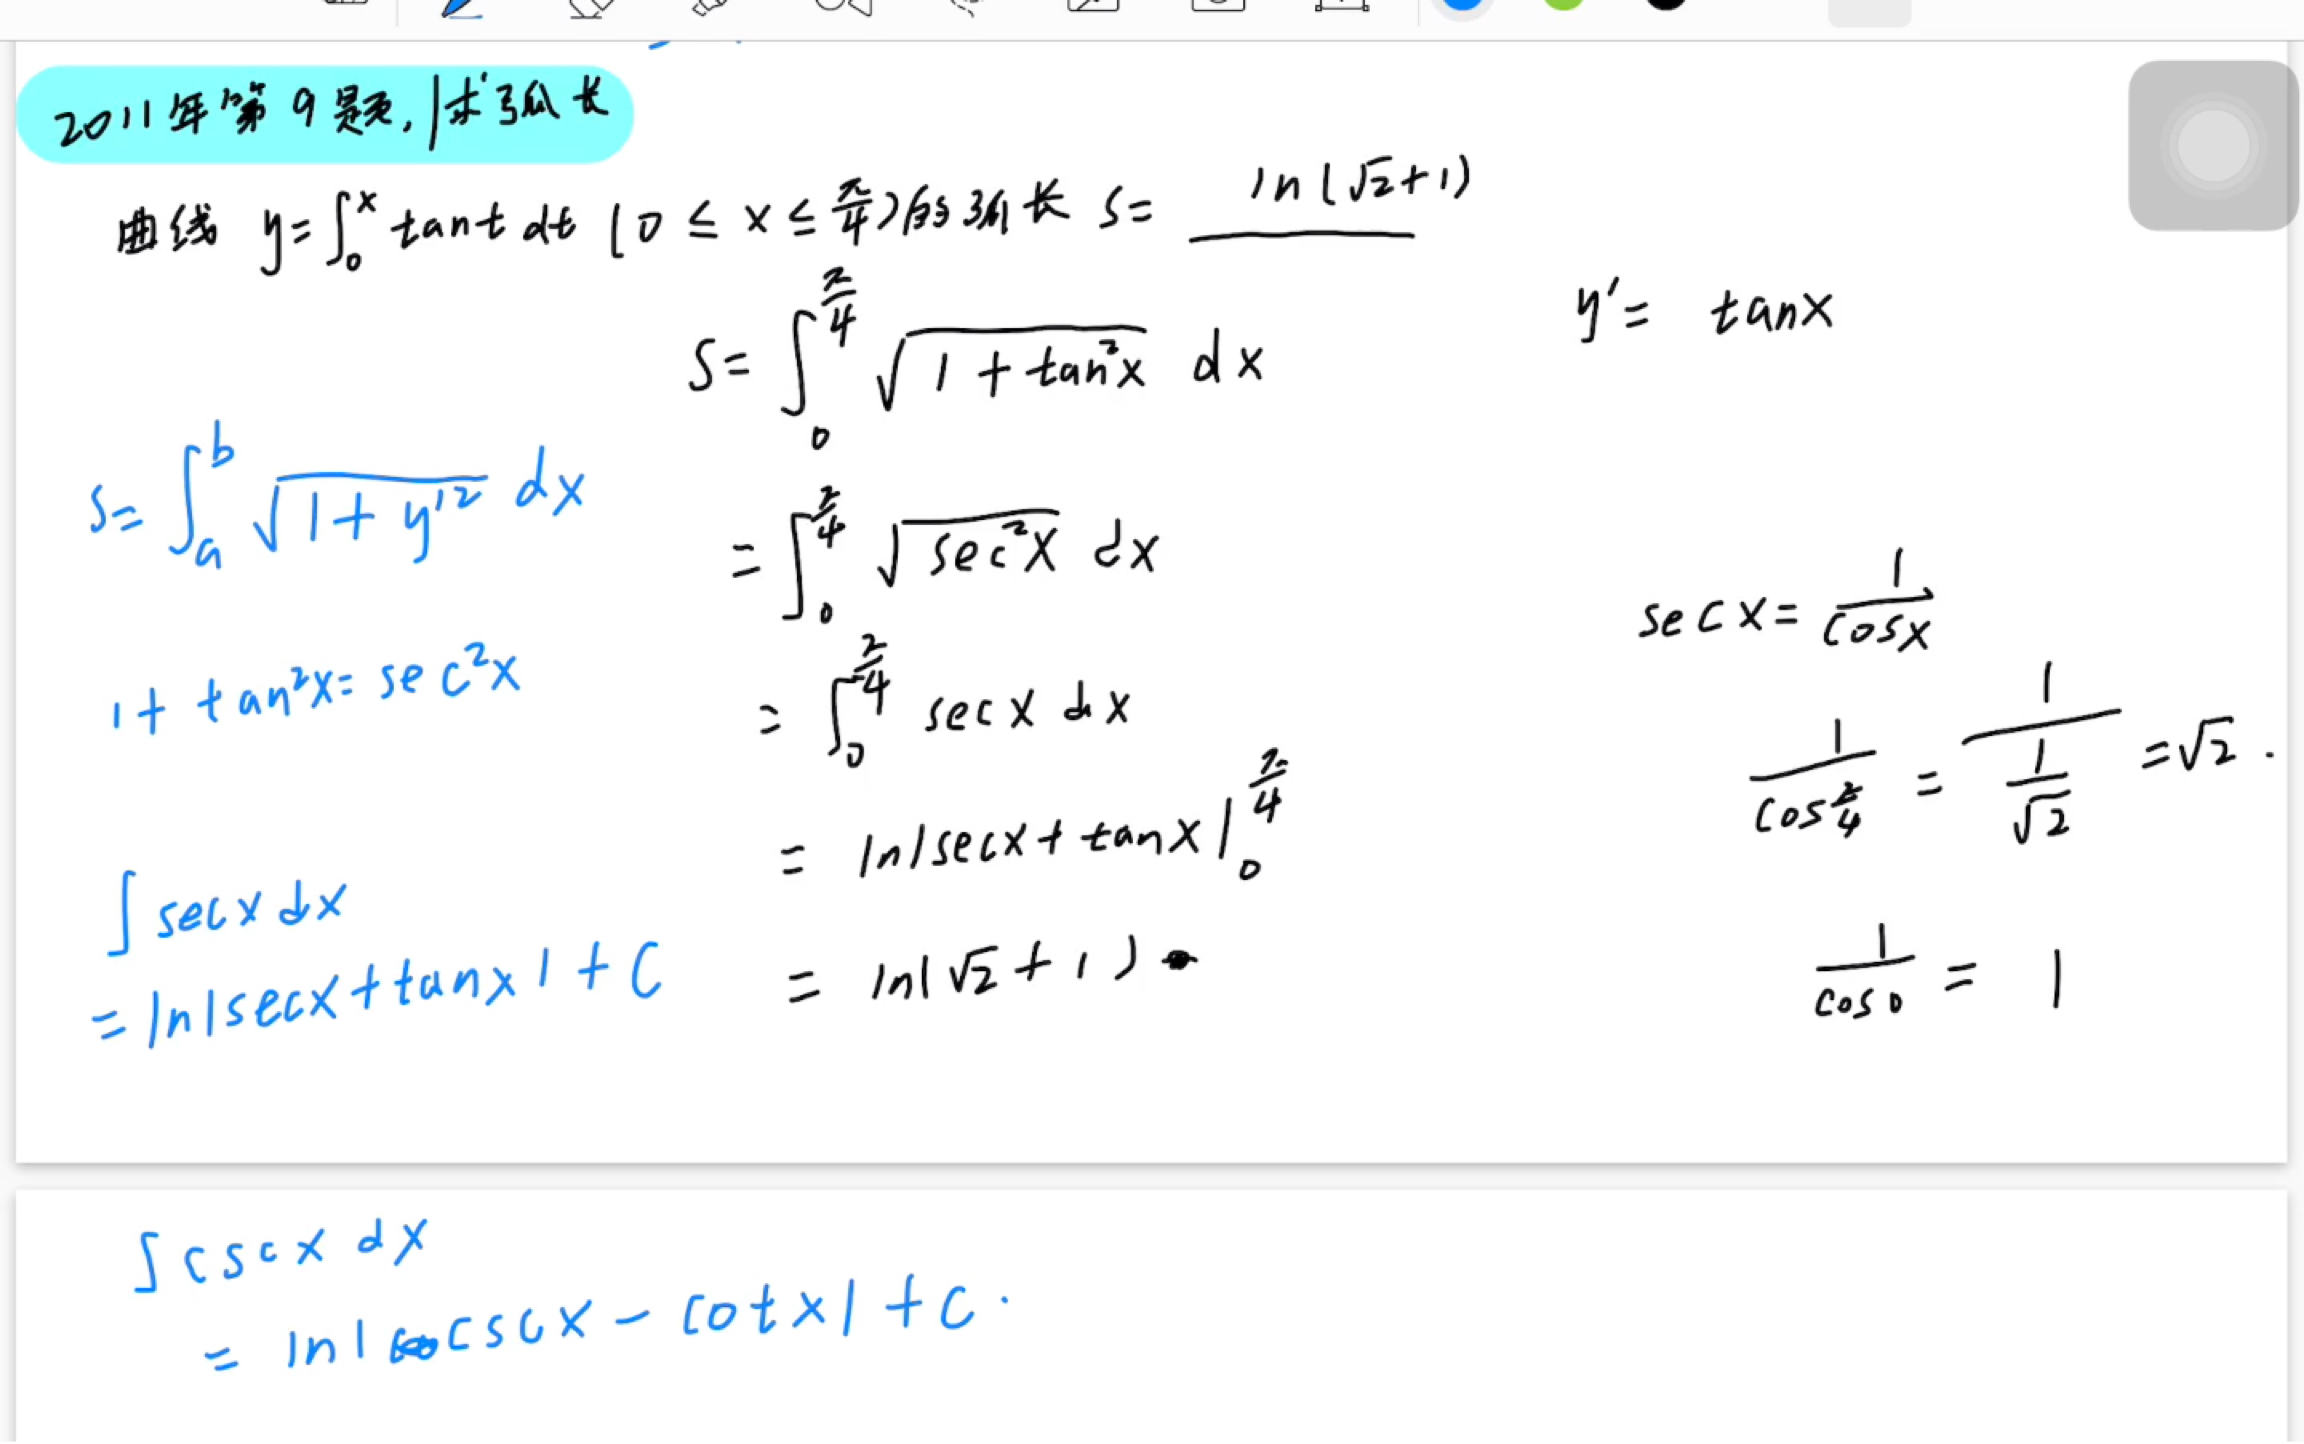 2011年第9题,求弧长
曲线 y=∫₀ˣ tant dt (0 ≤ x ≤ π/4)的弧长 s= ln(√2+1)
y′= tanx
S= ∫₀^(π/4) √(1+tan²x) dx
s= ∫ₐᵇ √(1+y′²) dx
= ∫₀^(π/4) √(sec²x) dx
secx= 1/cosx
1+tan²x= sec²x
= ∫₀^(π/4) secx dx
1/cos(π/4) = 1/(1/√2) =√2.
= ln|secx+tanx| |₀^(π/4)
∫secx dx
= ln|secx+tanx|+C
= ln(√2+1)
1/cos0 = 1
∫cscx dx
= ln|cscx-cotx|+C.